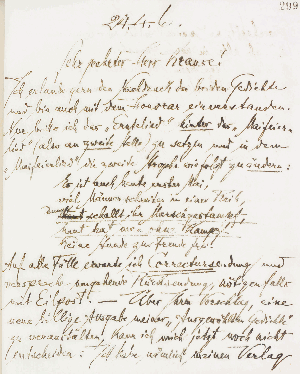 299
Sehr geehrter Herr Krause!
Ich erlaube gern den Nachdruck der beiden Gedichte
und bin auch mit dem Honorar einverstanden.
Nur bitte ich das „Erntelied" hinter das „Maifeier-
lied" (also an zweite Stelle) zu setzen und in dem
„Maifeierlied" die zweite Strophe wie folgt zu ändern:
Es ist auch heute erster Mai,
viel Männer in einer Reih,
schallt ihr
haut hat man ohne
keine Hände zur frei
Auf alle Fälle erwarte ich Correctursendung und
verspreche umgehende Rücksendung, nötigenfalls
mit Eilpost. — Über Ihren Vorschlag, eine
billige Ausgabe meiner „Ausgewählten Gedichte"
zu veranstalten, kann ich mich jetzt noch nicht
entscheiden. Ich habe nämlich meinen Verlag